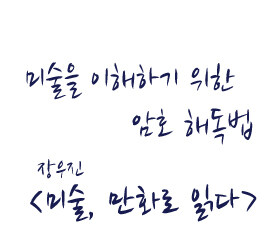 미술을 이해하기 위한
암호 해독법
장우진
<미술, 만화로 읽다>